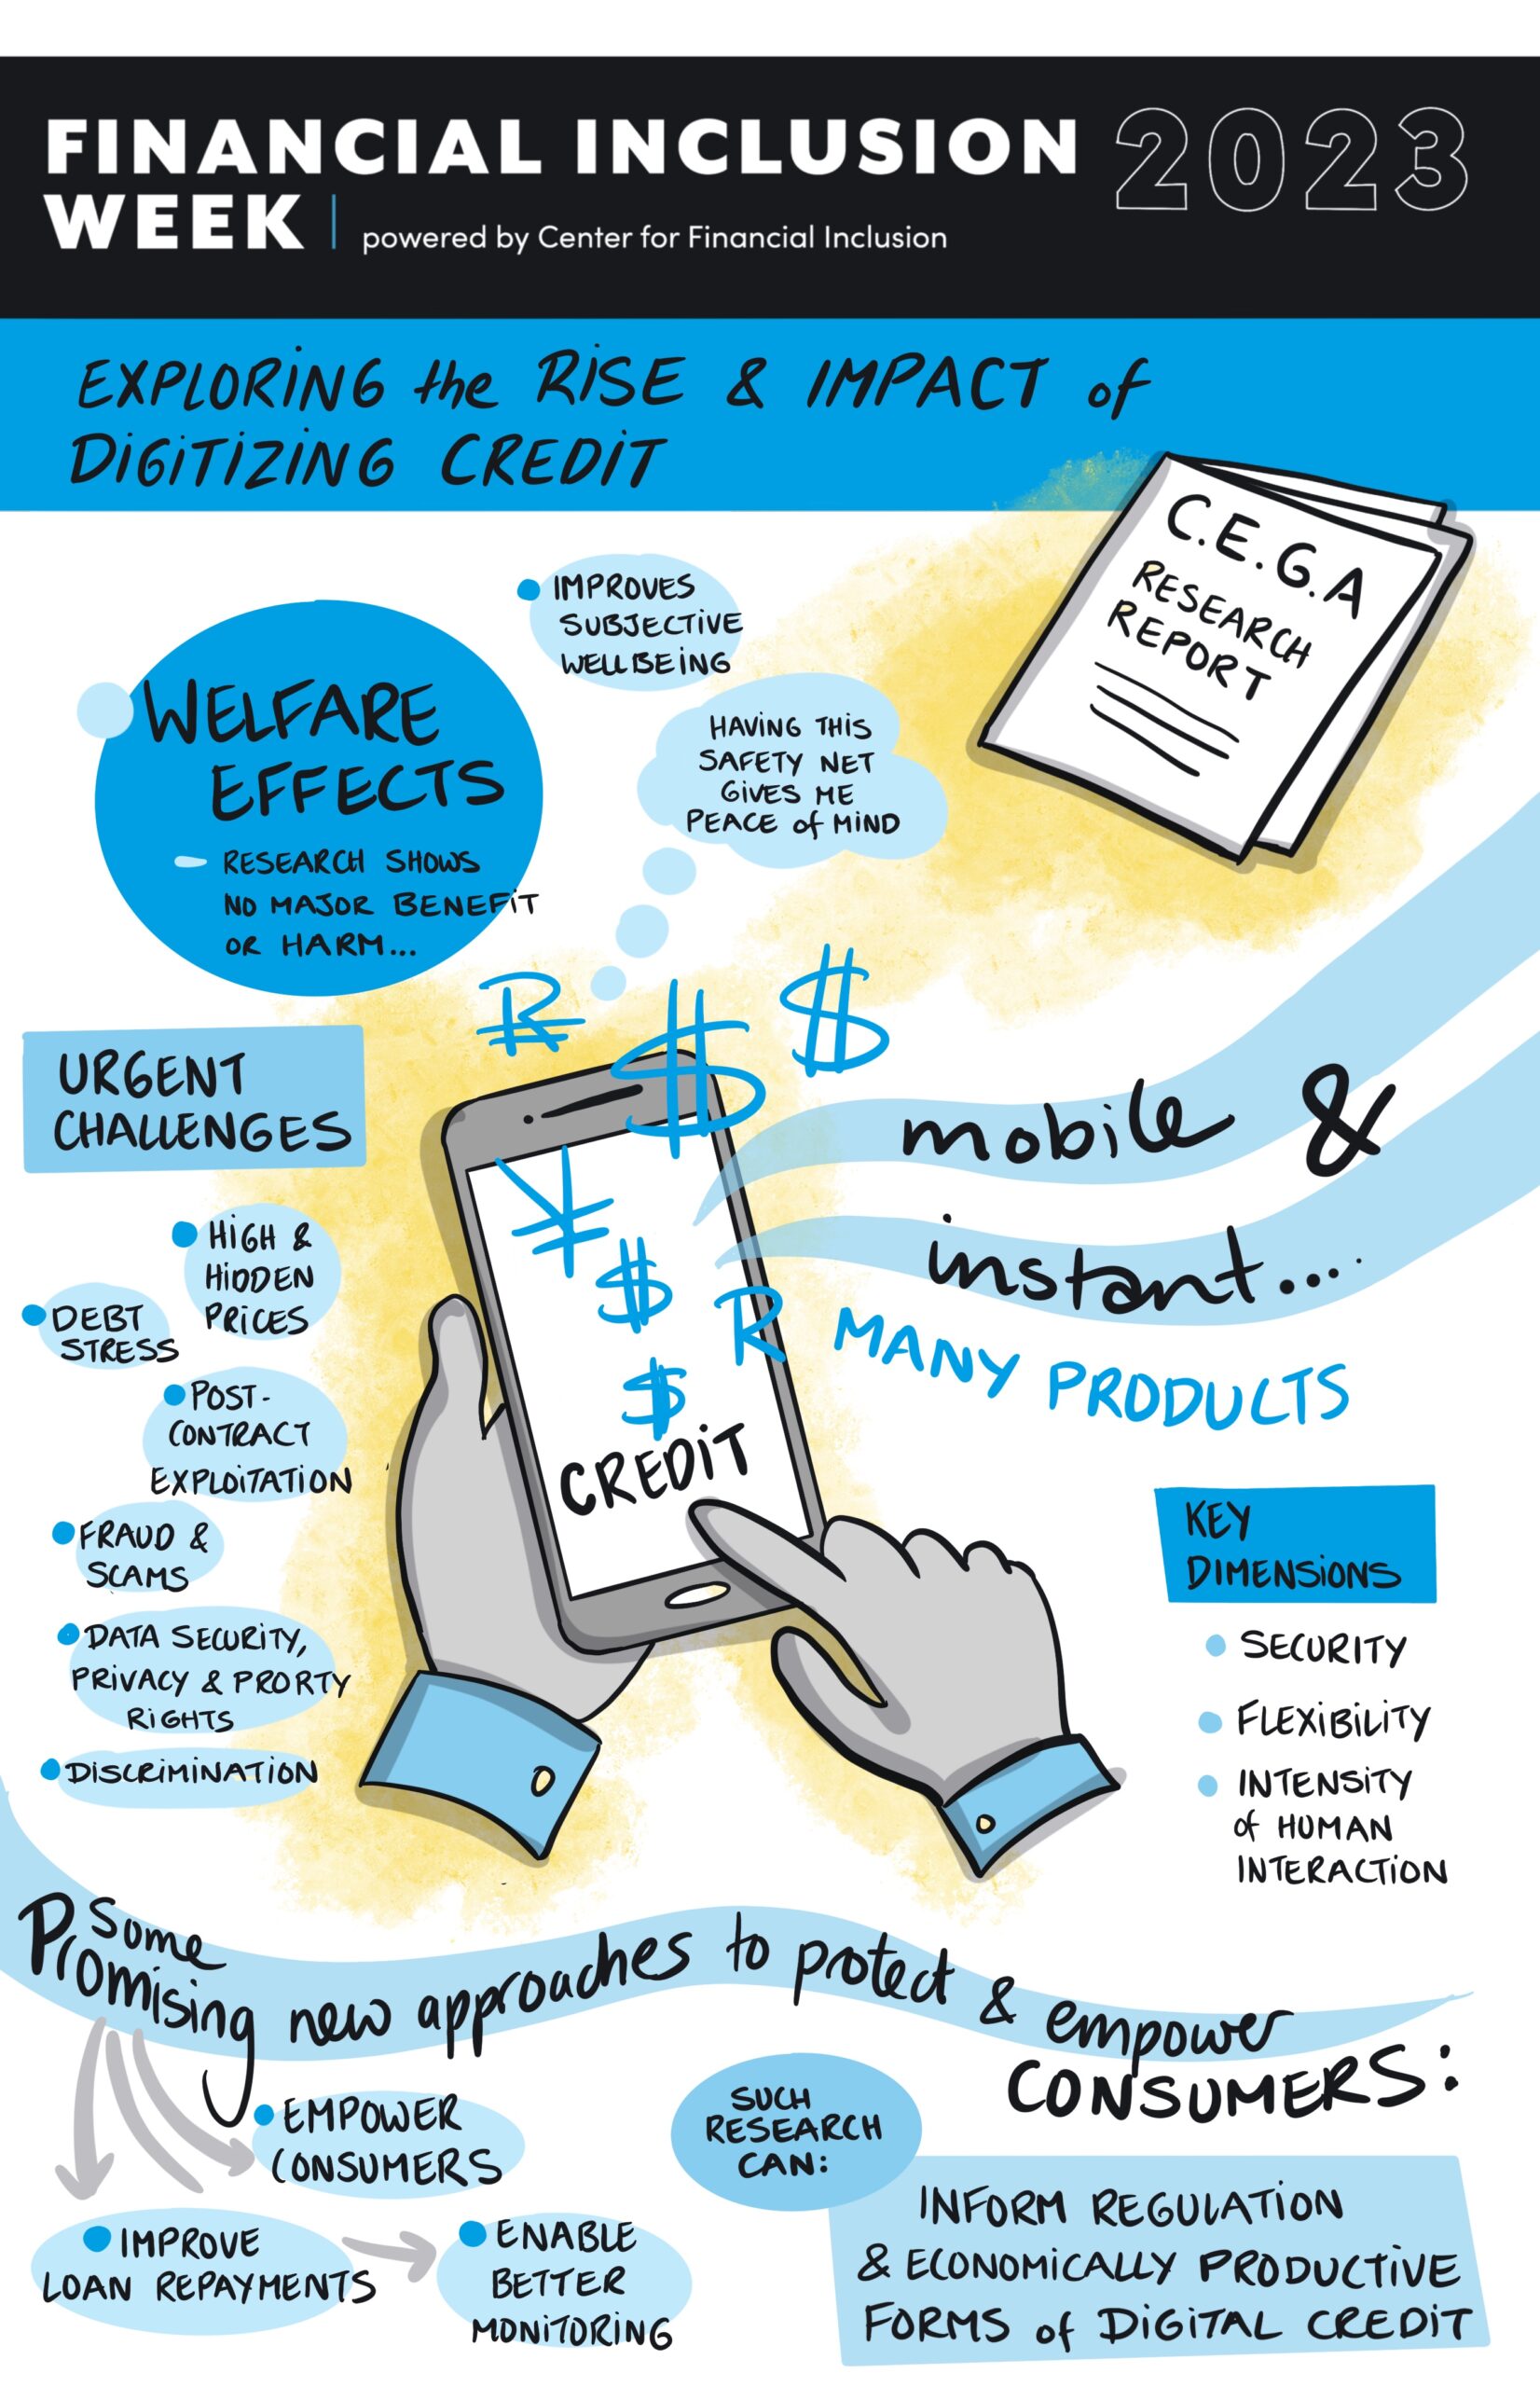 FINANCIAL INCLUSION 2023
WEEK | powered by Center for Financial Inclusion
EXPLORING the RISE & IMPACT of
DIGITIZING CREDIT
C.E.G.A
RESEARCH
REPORT
IMPROVES
SUBJECTIVE
WELLBEING
WELFARE
EFFECTS
– RESEARCH SHOWS
NO MAJOR BENEFIT
OR HARM...
HAVING THIS
SAFETY NET
GIVES ME
PEACE of MIND
URGENT
CHALLENGES
HIGH &
HIDDEN
PRICES
DEBT
STRESS
POST-
CONTRACT
EXPLOITATION
FRAUD &
SCAMS
DATA SECURITY,
PRIVACY & PRORTY
RIGHTS
DISCRIMINATION
R $ $
¥
$
R
$
CREDIT
mobile &
instant...
MANY PRODUCTS
KEY
DIMENSIONS
SECURITY
FLEXIBILITY
INTENSITY
of HUMAN
INTERACTION
Some
Promising new approaches to protect & empower
CONSUMERS:
EMPOWER
CONSUMERS
IMPROVE
LOAN REPAYMENTS
ENABLE
BETTER
MONITORING
SUCH
RESEARCH
CAN:
INFORM REGULATION
& ECONOMICALLY PRODUCTIVE
FORMS of DIGITAL CREDIT